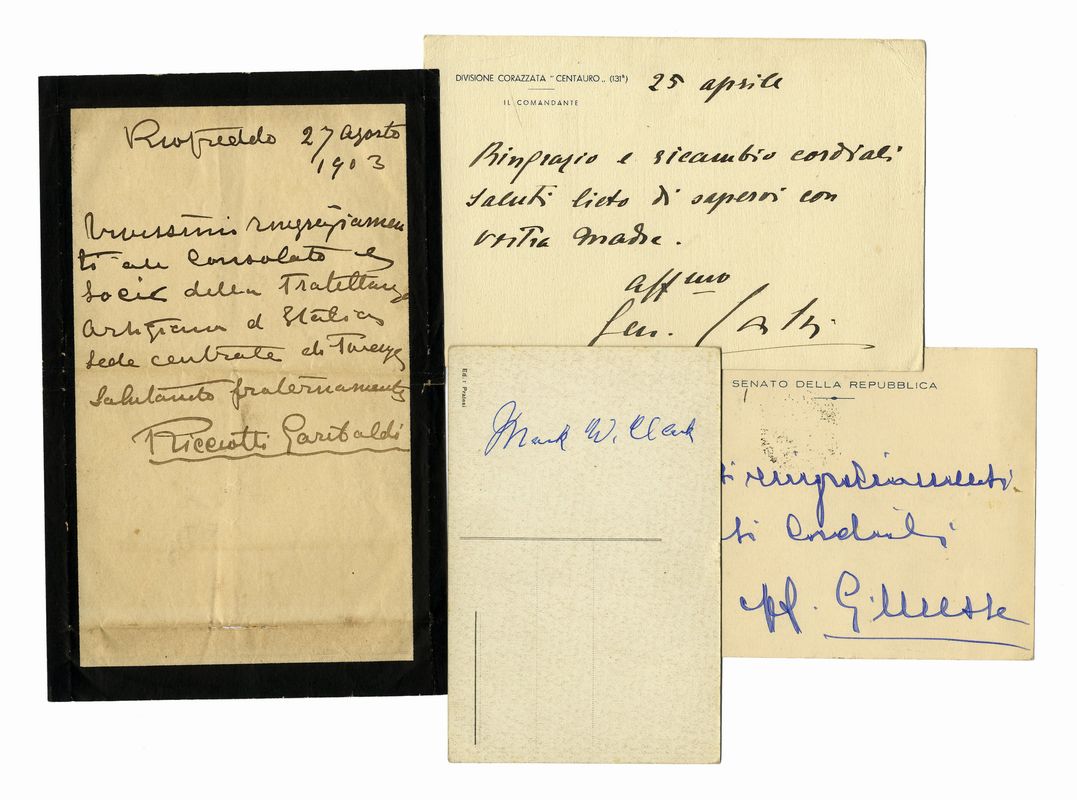 Riofreddo 27 Agosto
1903
Vivissimi ringraziamen
ti al Consolato e
Soci della Fratellanza
Artigiana d'Italia
Sede centrale di Firenze
Salutando fraternamente
Ricciotti Garibaldi
DIVISIONE CORAZZATA "CENTAURO" (131ª)
IL COMANDANTE
25 aprile
Ringrazio e ricambio cordiali
saluti lieto di sapervi con
vostra madre.
Aff mo
Gen.
Ed. : Pralesi
Mark W. Clark
SENATO DELLA REPUBBLICA
ti ringraziamenti
ti cordiali
G. Messe